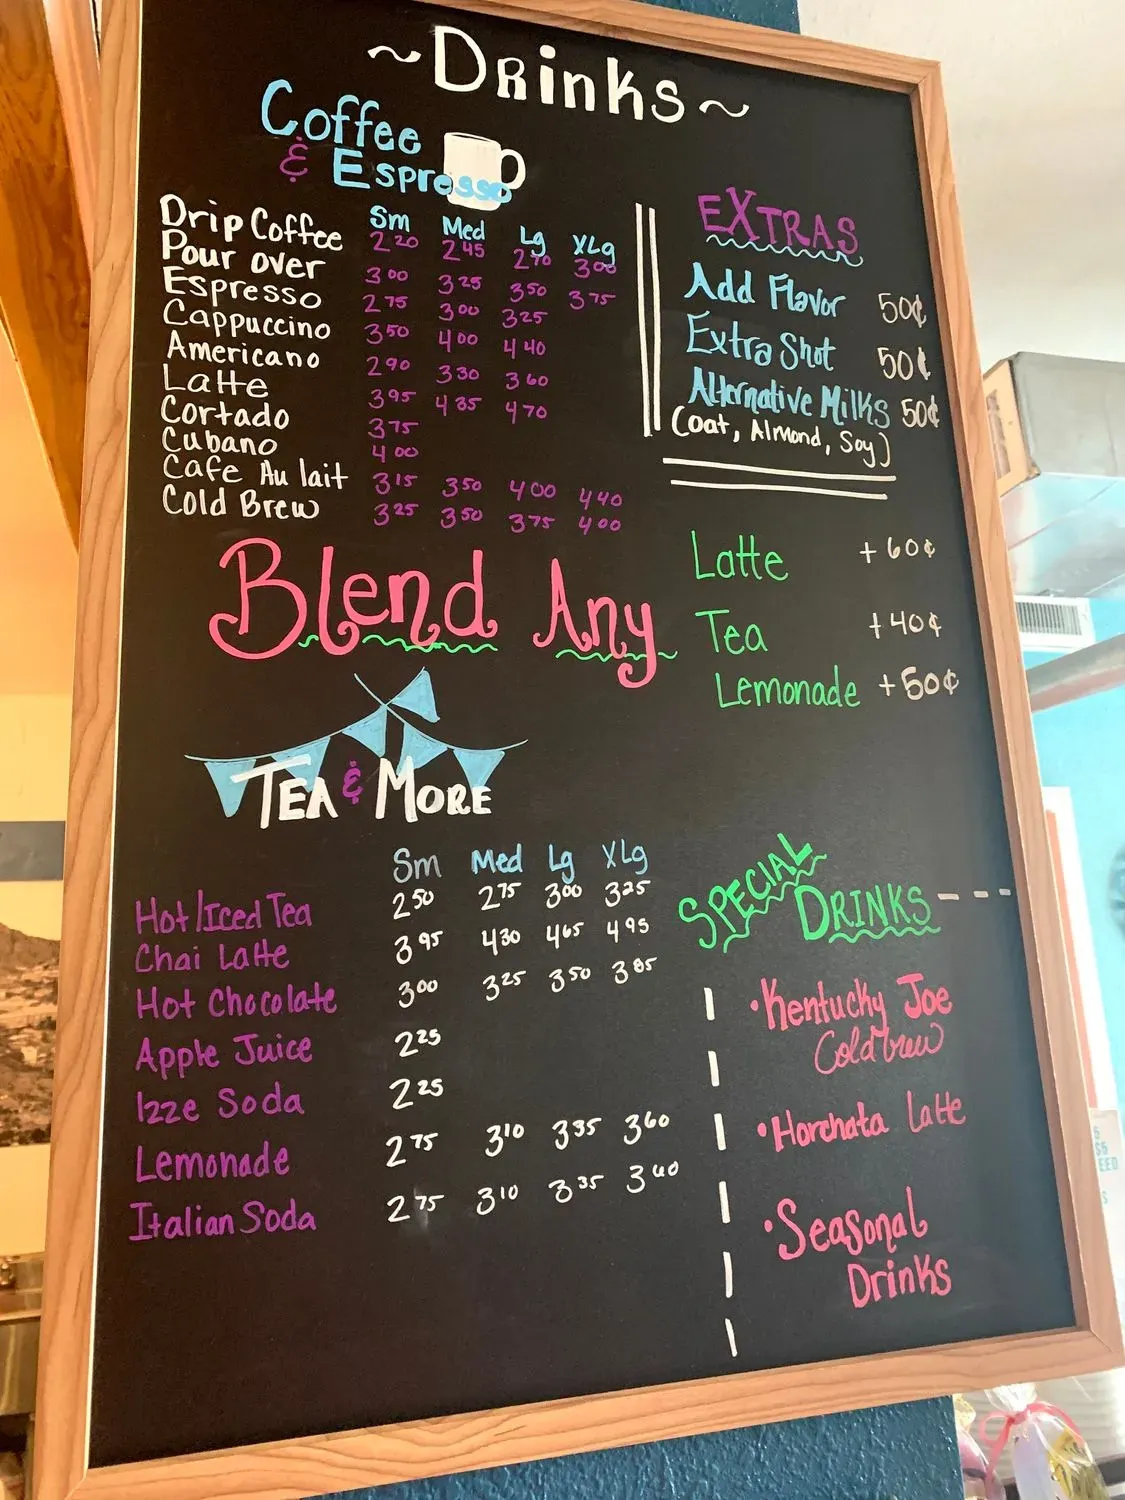 ~Drinks~
Coffee
& Espresso
Sm Med Lg XLg
Drip Coffee 2.20 2.45 2.70 3.00
Pour over 3.00 3.25 3.50 3.75
Espresso 2.75 3.00 3.25
Cappuccino 3.50 4.00 4.40
Americano 2.90 3.30 3.60
Latte 3.95 4.35 4.70
Cortado 3.75
Cubano 4.00
Cafe Au lait 3.15 3.50 4.00 4.40
Cold Brew 3.25 3.50 3.75 4.00
EXTRAS
Add Flavor 50¢
Extra Shot 50¢
Alternative Milks 50¢
(oat, Almond, Soy)
Blend Any
Latte +60¢
Tea +40¢
Lemonade +50¢
TEA & MORE
Sm Med Lg XLg
Hot/Iced Tea 2.50 2.75 3.00 3.25
Chai Latte 3.95 4.30 4.65 4.95
Hot Chocolate 3.00 3.25 3.50 3.85
Apple Juice 2.25
Izze Soda 2.25
Lemonade 2.75 3.10 3.35 3.60
Italian Soda 2.75 3.10 3.35 3.60
SPECIAL
DRINKS
•Kentucky Joe
Cold brew
•Horchata Latte
•Seasonal
Drinks